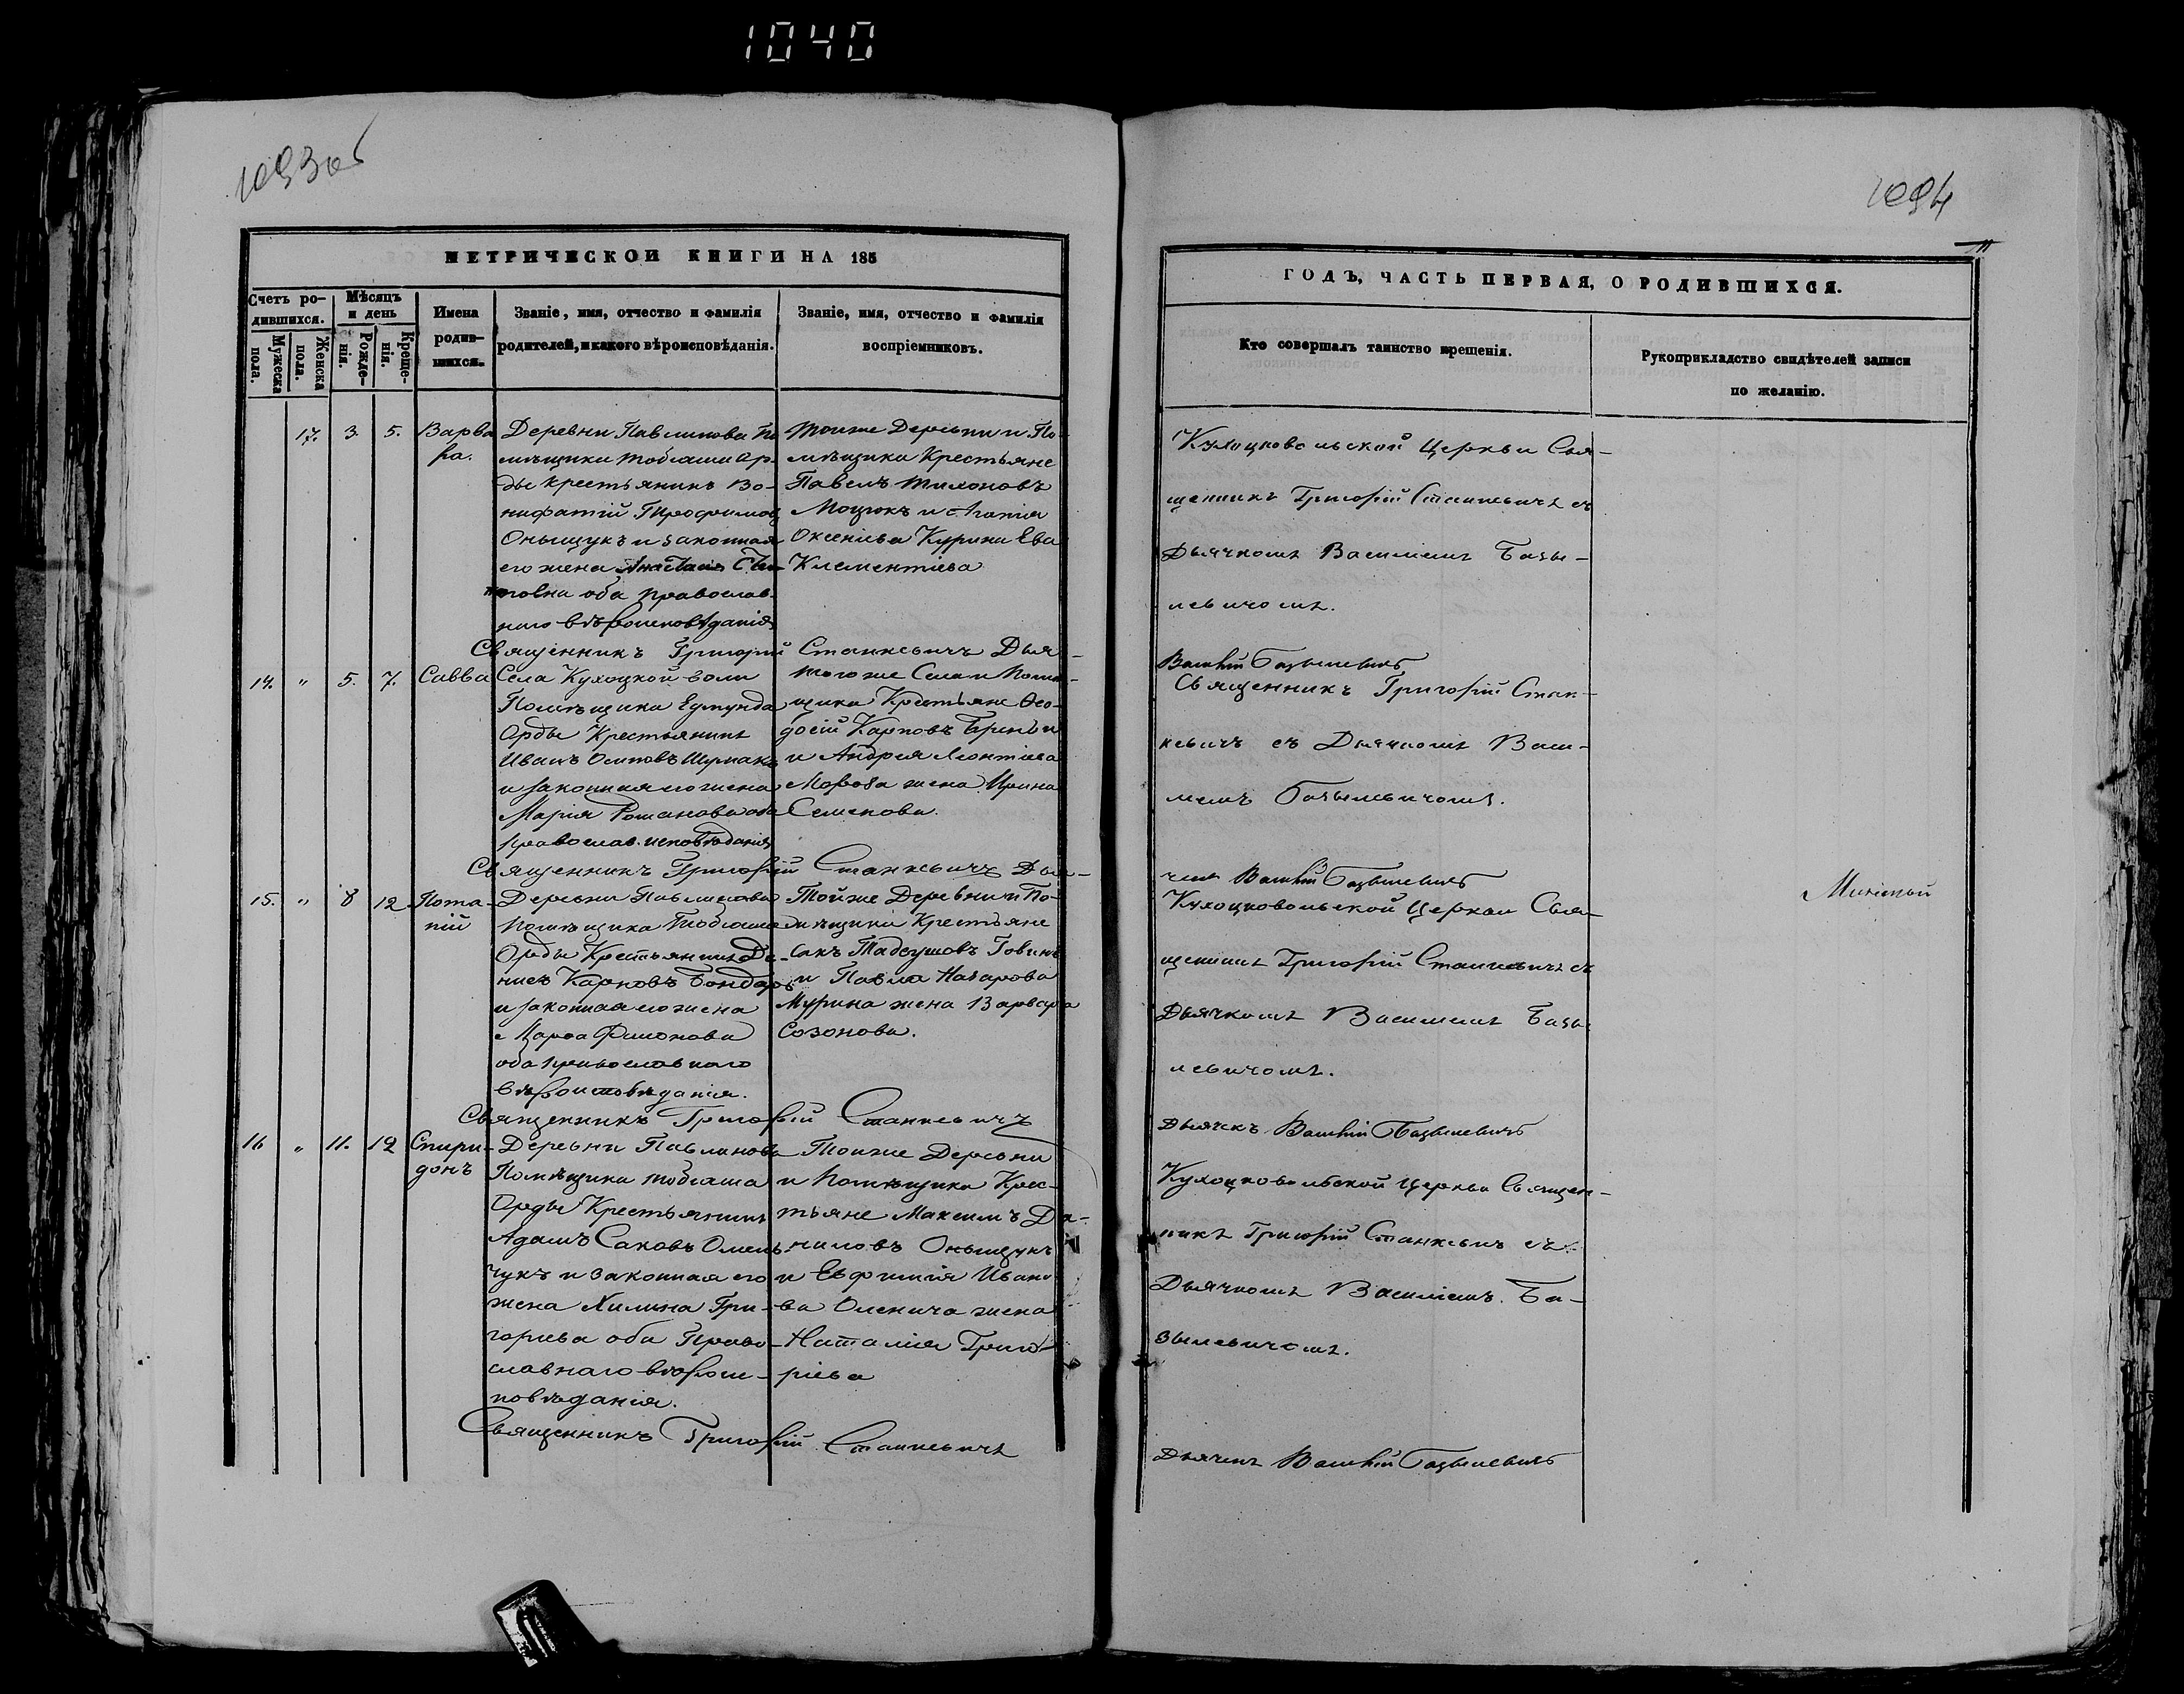 1040
1093об
МЕТРИЧЕСКОЙ КНИГИ НА 185
Счетъ ро-
дившихся.
Мужеска пола.
Женска пола.
Мѣсяцъ
и день
Рожде-
нія.
Креще-
нія.
Имена
родив-
шихся.
Званіе, имя, отчество и фамилія
родителей, и какого вѣроисповѣданія.
Званіе, имя, отчество и фамилія
воспріемниковъ.
17. 3. 5. Варва
ра.
Деревни Павлинова По
мѣщика Тобіаша Ор-
ды крестьянинъ Во-
нифатій Трофимовъ
Оныщукъ и законная
его жена
оба православ-
наго вѣроисповѣданія
Тоиже Деревни и По-
мѣщика Крестьяне
Павелъ Тихоновъ
Моцюкъ и Агапія
Оксеніева Курина Ева
Климентіева
Священникъ Григорій Станкевичъ Дья-
14. " 5. 7. Савва
Села Кухоцкой воли
Помѣщика Едмунда
Орды Крестьянинъ
Иванъ Осиповъ Шумакъ
и законная его жена
Марія Романова оба
православ. исповѣданія
Того же Села и Помѣ-
щика Крестьяне Ѳео-
досій Карповъ
и Андрея Леонтіева
Мороза жена Ирина
Семенова.
Священникъ Григорій Станкевичъ Дья-
15. " 8 12 Пота-
пій
Деревни Павлинова
Помѣщика Тобіаша
Орды Крестьянинъ Де-
нисъ Карповъ Бондарь
и законная его жена
Марѳа Филонова
оба православнаго
вѣроисповѣданія.
Тойже Деревни и По-
мѣщика Крестьяне
Сакъ Тадеушовъ Говинъ
и Павла Назарова
Мурина жена Варвара
Созонова.
Священникъ Григорій Станкевичъ
16 " 11. 12 Спири-
донъ
Деревни Павлинова
Помѣщика Тобіаша
Орды Крестьянинъ
Адамъ Саковъ Омель
чукъ и законная его
жена Акилина Гри-
горіева оба Право-
славнаго вѣроис-
повѣданія.
Тоиже Деревни
и Помѣщика Крес-
тьяне Максимъ Да-
ниловъ Оныщукъ
и Евфимія Ивано
ва Оленича жена
Наталія Григо-
ріева
Священникъ Григорій Станкевичъ
1094
11
ГОДЪ, ЧАСТЬ ПЕРВАЯ, О РОДИВШИХСЯ.
Кто совершалъ таинство крещенія.
Рукоприкладство свидѣтелей записи
по желанію.
Кухоцковольской Церкви Свя-
щенникъ Григорій Станкевичъ съ
Дьячкомъ Василіемъ Базы-
левичомъ.
Василій Базылевичъ
Священникъ Григорій Стан-
кевичъ съ Дьячкомъ Васи-
ліемъ Базылевичомъ.
чекъ Василій Базылевичъ
Кухоцковольской Церкви Свя-
щенникъ Григорій Станкевичъ съ
Дьячкомъ Василіемъ Базы-
левичомъ.
Дьячекъ Василій Базылевичъ
Кухоцковольской Церкви Священ-
никъ Григорій Станкевичъ съ
Дьячкомъ Василіемъ Ба-
зылевичомъ.
Дьячекъ Василій Базылевичъ